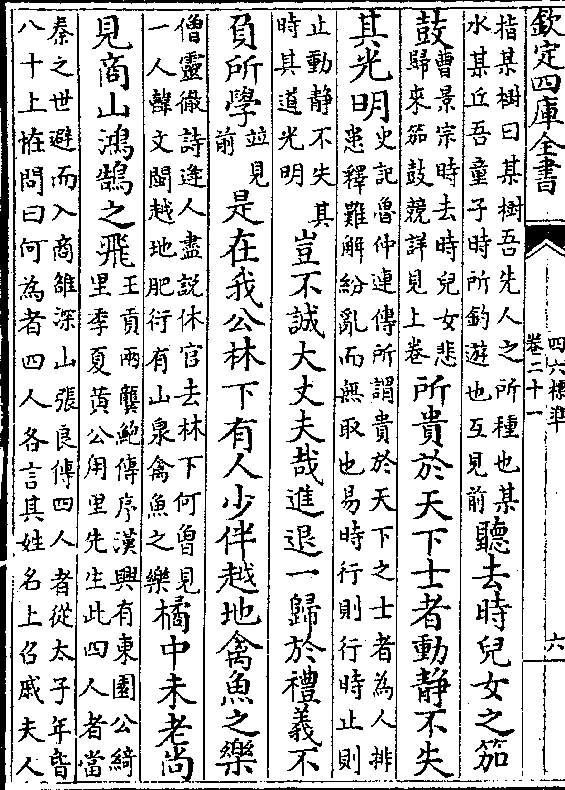 欽定四庫全書
四六標準
卷二十一
六
指某樹曰某樹吾先人之所種也某
水某丘吾童子時所釣遊也互見前
聽去時兒女之笳
鼓
曹景宗時去時兒女悲
歸來笳鼓競詳見上卷
所貴於天下士者動靜不失
其光明
史記魯仲連傳所謂貴於天下之士者為人排
患釋難解紛亂而無取也易時行則行時止則
止動靜不失其
時其道光明
豈不誠大丈夫哉進退一歸於禮義不
負所學
並見
前
是在我公林下有人少伴越地禽魚之樂
僧靈徹詩逢人盡説休官去林下何曾見
一人韓文閩越地肥衍有山泉禽魚之樂
橘中未老尚
見商山鴻鵠之飛
王貢兩龔鮑傳序漢興有東園公綺
里季夏黄公甪里先生此四人者當
秦之世避而入商雒深山張良傳四人者從太子年皆
八十上恠問曰何為者四人各言其姓名上召戚夫人